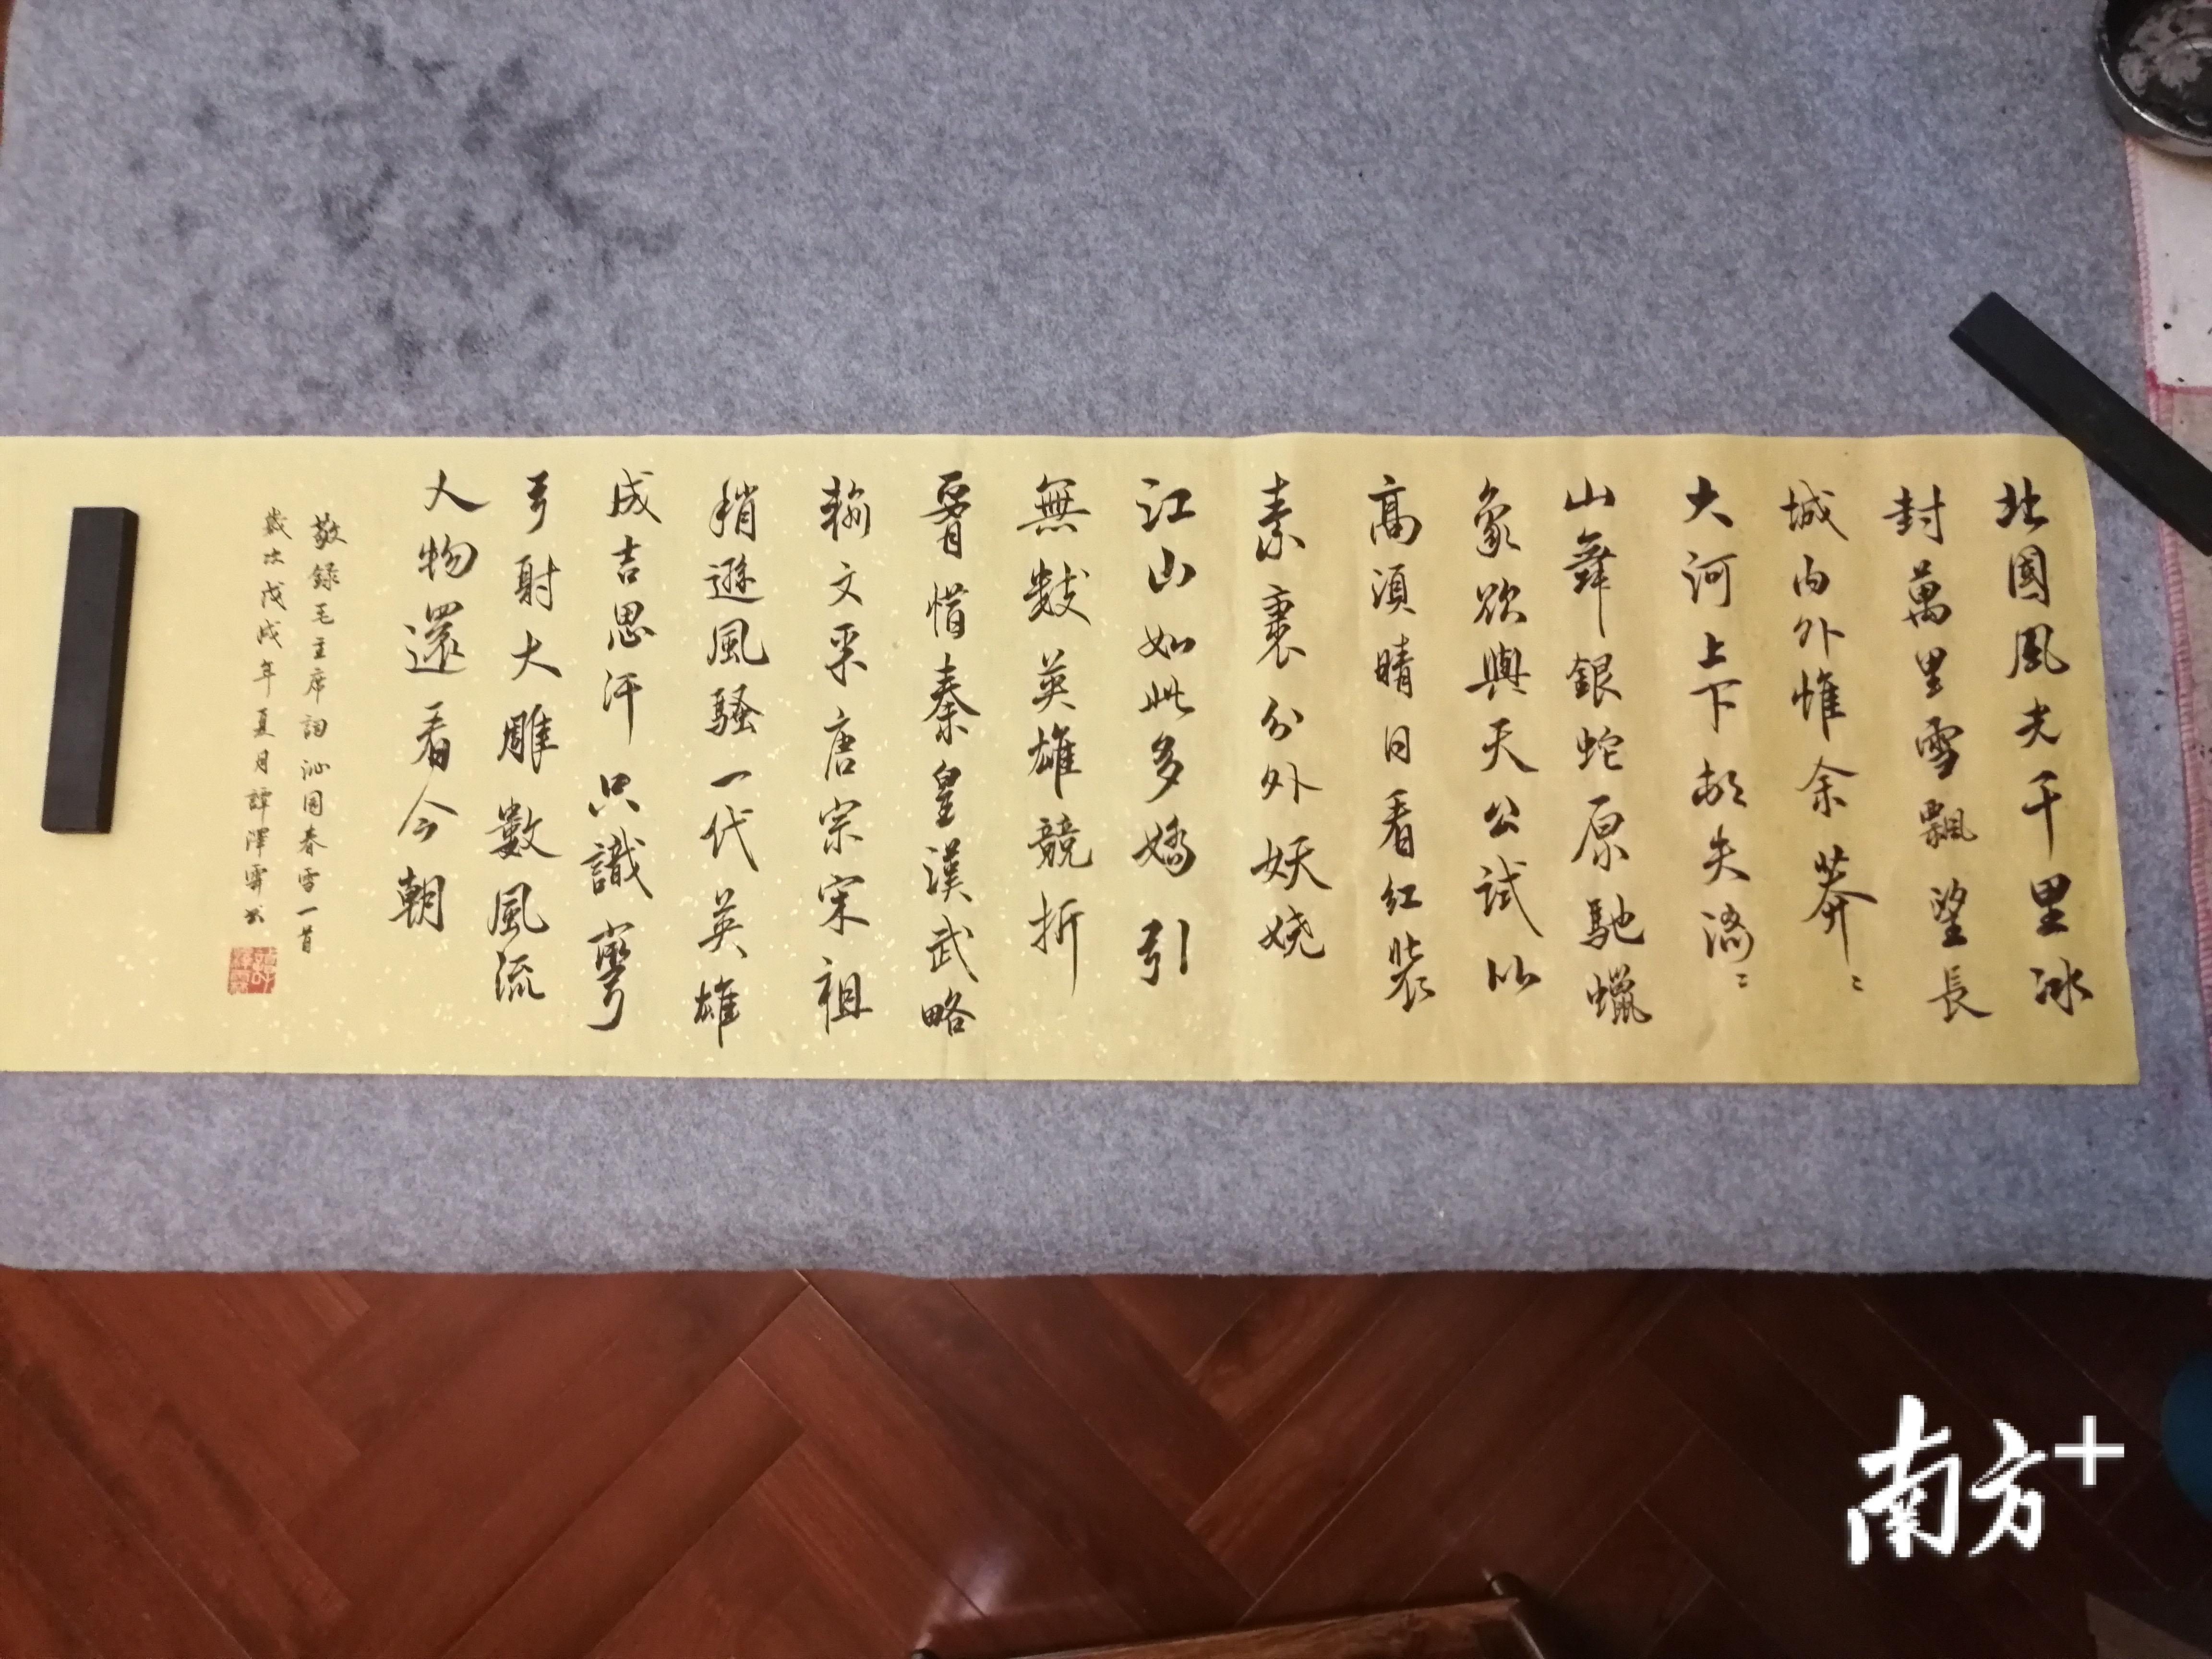 北國風光千里冰
封萬里雪飄望長
城內外惟余莽〻
大河上下頓失滔〻
山舞銀蛇原馳蠟
象欲與天公試比
高須晴日看紅裝
素裹分外妖嬈
江山如此多嬌引
無數英雄競折
腰惜秦皇漢武略
輸文采唐宗宋祖
稍遜風騷一代英雄
成吉思汗只識彎
弓射大雕數風流
人物還看今朝
敬錄毛主席詞沁園春雪一首
歲次戊戌年夏月譚澤書
南方+